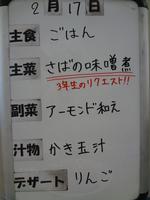 2月17日
主食 ごはん
主菜 さばの味噌煮
3年生のリクエスト!!
副菜 アーモンド和え
汁物 かき玉汁
デザート りんご